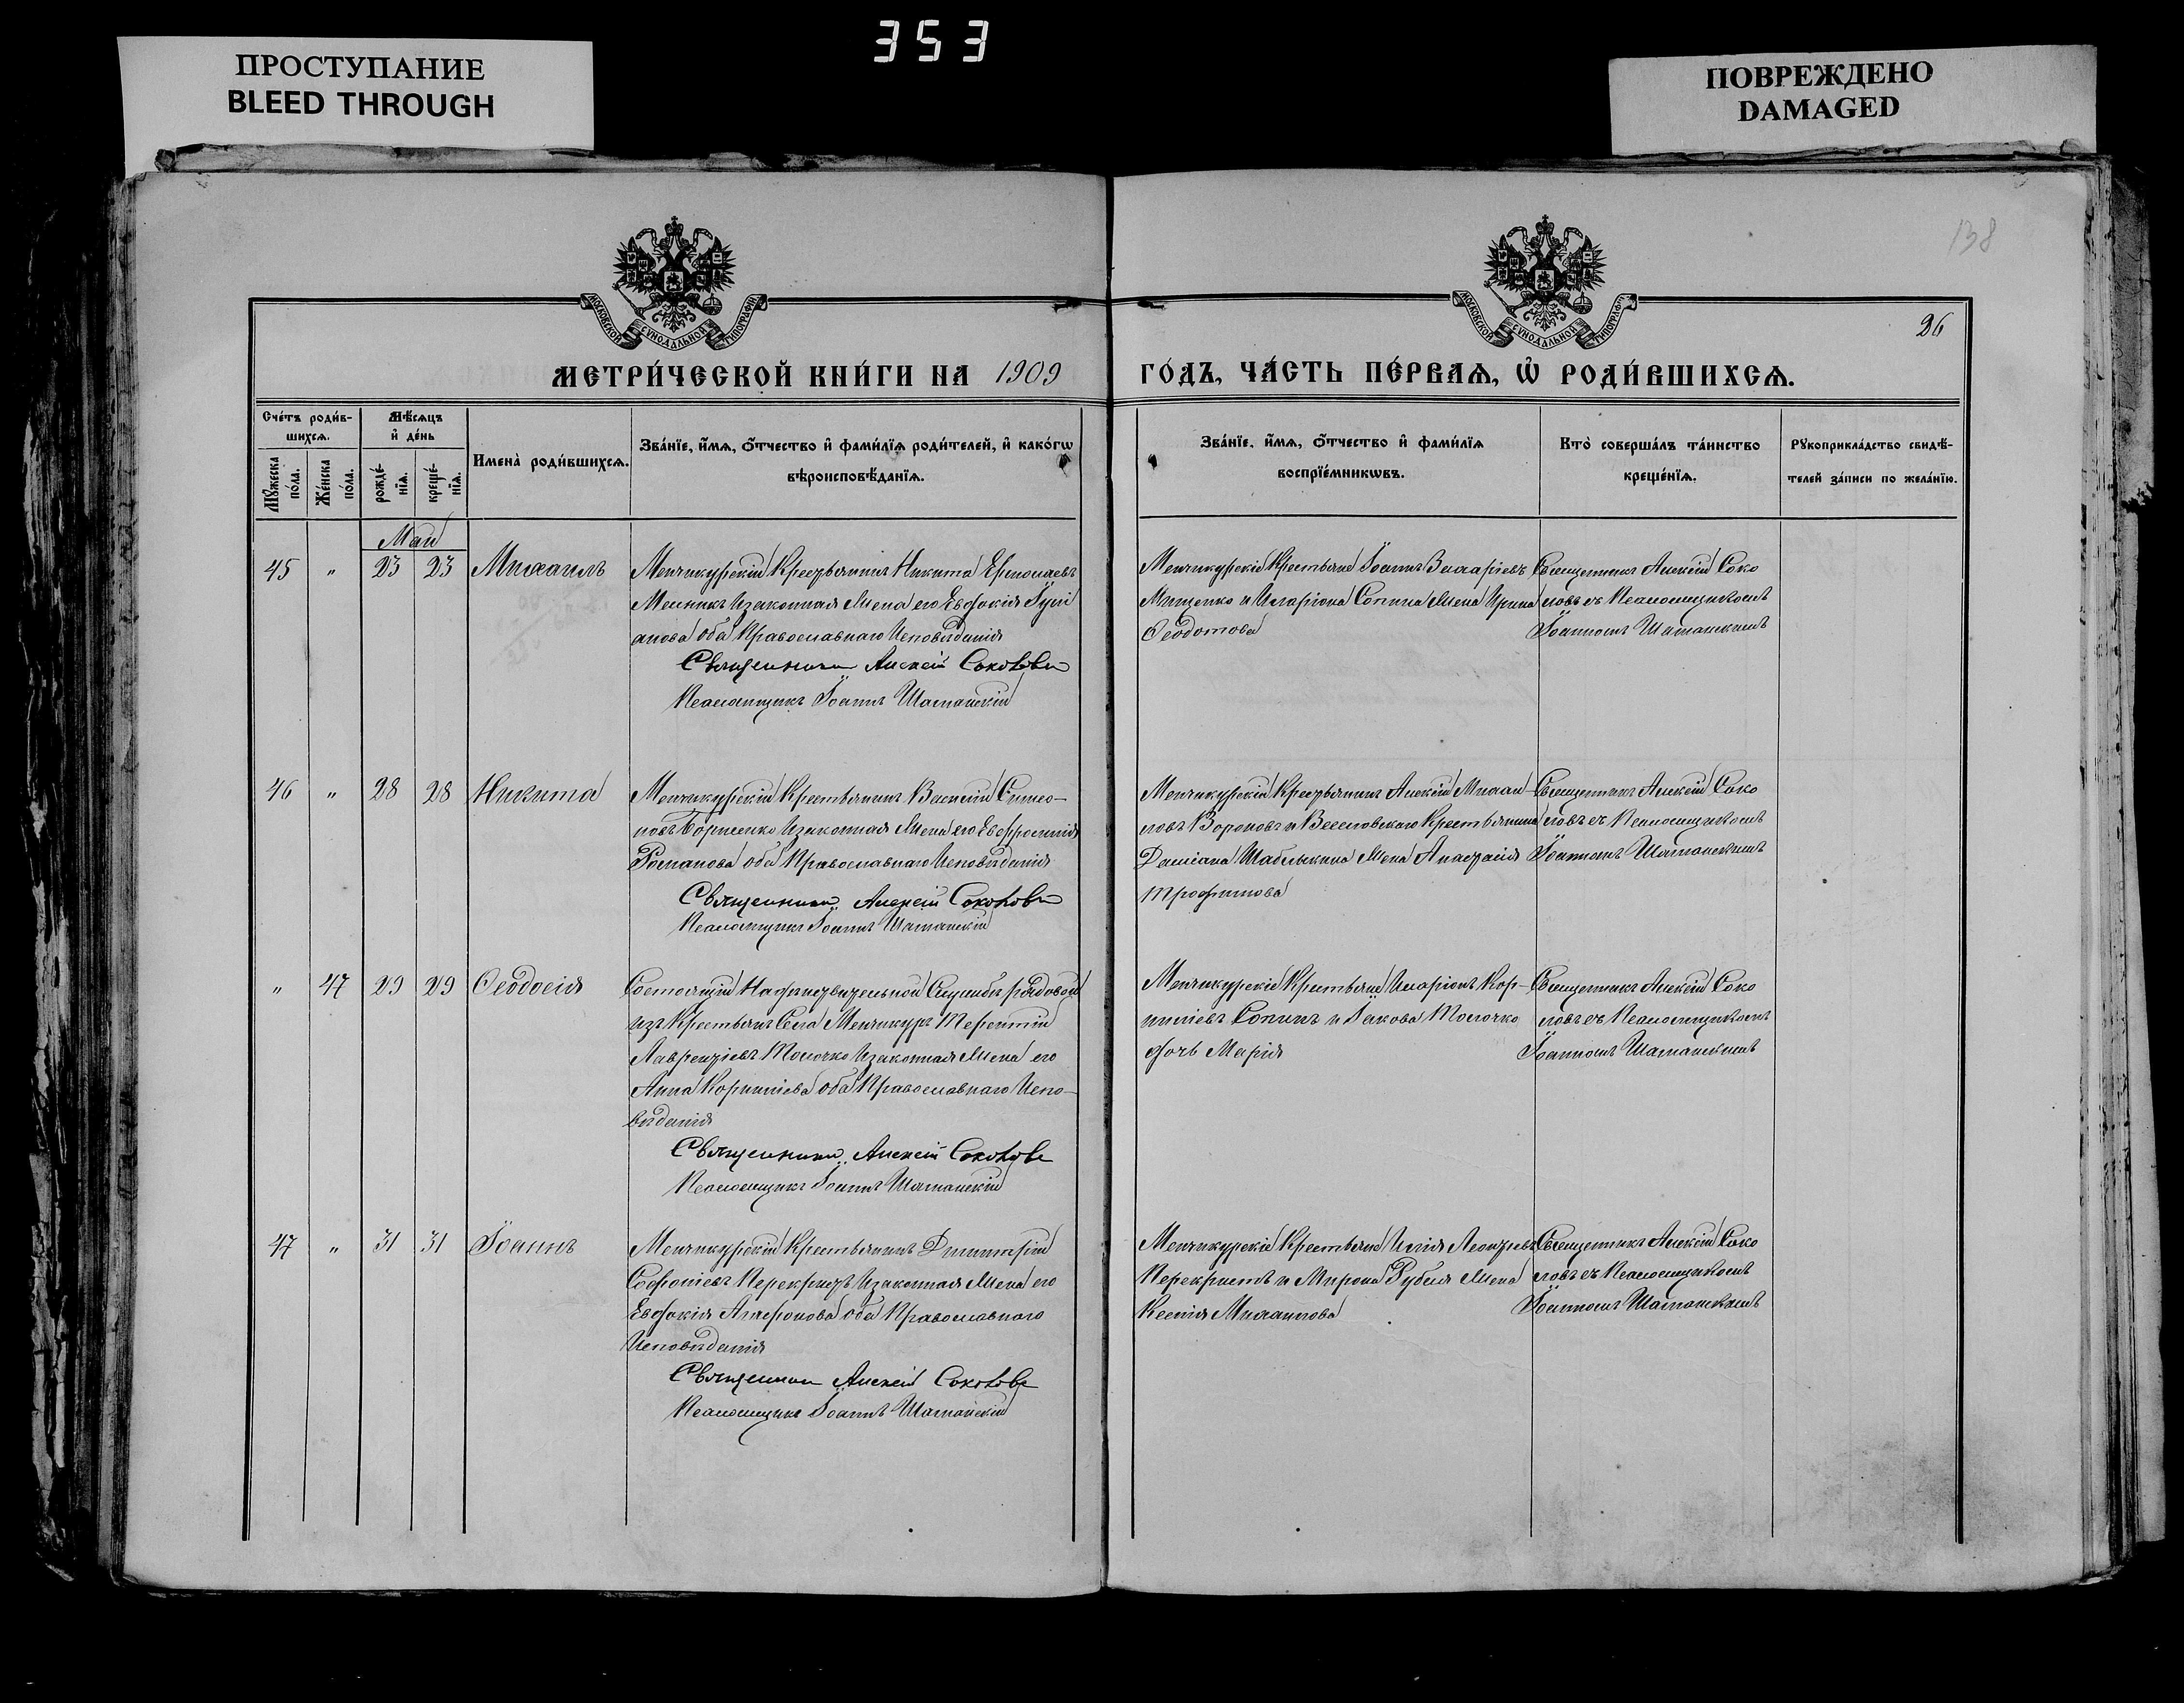 353
ПРОСТУПАНИЕ
BLEED THROUGH
ПОВРЕЖДЕНО
DAMAGED
138
МОСКОВСКОЙ СѴНОДАЛЬНОЙ ТИПОГРАФІИ
МОСКОВСКОЙ СѴНОДАЛЬНОЙ ТИПОГРАФІИ
26
МЕТРИ́ЧЕСКОЙ КНИ́ГИ НА 1909
ГО́ДЪ, ЧА́СТЬ ПЕ́РВАѦ, Ѡ҆ РОДИ́ВШИХСѦ.
Сче́тъ роди́в-
шихсѧ.
Мѣ́сѧцъ
и҆ де́нь
Мꙋ́жеска по́ла.
Же́нска по́ла.
рожде́-нїѧ.
креще́-нїѧ.
Имена̀ роди́вшихсѧ.
Зва́нїе, и҆́мѧ, ѻ҆́тчество и҆ фами́лїѧ роди́телей, и҆ како́гѡ
вѣроисповѣ́данїѧ.
Зва́нїе, и҆́мѧ, ѻ҆́тчество и҆ фами́лїѧ
воспрїе́мникѡвъ.
Кто̀ соверша́лъ та́инство
креще́нїѧ.
Рꙋкоприкла́дство свидѣ́-
телей за́писи по жела́нїю.
Май
45 " 23 23 Михаилъ
Менчикурскій Крестьянинъ Никита Ермолаевъ
Мельникъ Изаконная Жена его Евдокія
анова оба Православнаго Исповѣданія
Священникъ Алексій Соколовъ
Псаломщикъ Іоаннъ Шатанскій
Менчикурскіе Крестьяне Іоаннъ Захаріевъ
Мищенко и Иларіона Сопина Жена Ирина
Ѳеодотова
Священникъ Алексій Соко
ловъ съ Псаломщикомъ
Іоанномъ Шатанскимъ
46 " 28 28 Никита
Менчикурскій Крестьянинъ Василій Симео-
новъ Борисенко Изаконная Жена его Евфросинія
Романова оба Православнаго Исповѣданія
Священникъ Алексій Соколовъ
Псаломщикъ Іоаннъ Шатанскій
Менчикурскій Крестьянинъ Алексій Михаи-
ловъ Вороновъ и Веселовскаго Крестьянина
Даміана Шабелькина Жена Анастасія
Трофимова
Священникъ Алексій Соко
ловъ съ Псаломщикомъ
Іоанномъ Шатанскимъ
" 47 29 29 Ѳеодосія
Состоящій На дѣйствительной Службѣ рядовой
изъ Крестьянъ Села Менчикуръ Терентій
Лаврентіевъ Толочко Изаконная Жена его
Анна Корниліева оба Православнаго Испо-
вѣданія
Священникъ Алексій Соколовъ
Псаломщикъ Іоаннъ Шатанскій
Менчикурскіе Крестьяне Иларіонъ Кор-
ниліевъ Сопинъ и Іакова Толочко
дочь Марія
Священникъ Алексій Соко
ловъ съ Псаломщикомъ
Іоанномъ Шатанскимъ
47 " 31 31 Іоаннъ
Менчикурскій Крестьянинъ Димитрій
Софоніевъ Перекрестъ Изаконная Жена его
Евдокія Агафонова оба Православнаго
Исповѣданія
Священникъ Алексій Соколовъ
Псаломщикъ Іоаннъ Шатанскій
Менчикурскіе Крестьяне Илія Леонтьевъ
Перекрестъ и Мирона Рубля Жена
Ксенія Михаилова
Священникъ Алексій Соко
ловъ съ Псаломщикомъ
Іоанномъ Шатанскимъ